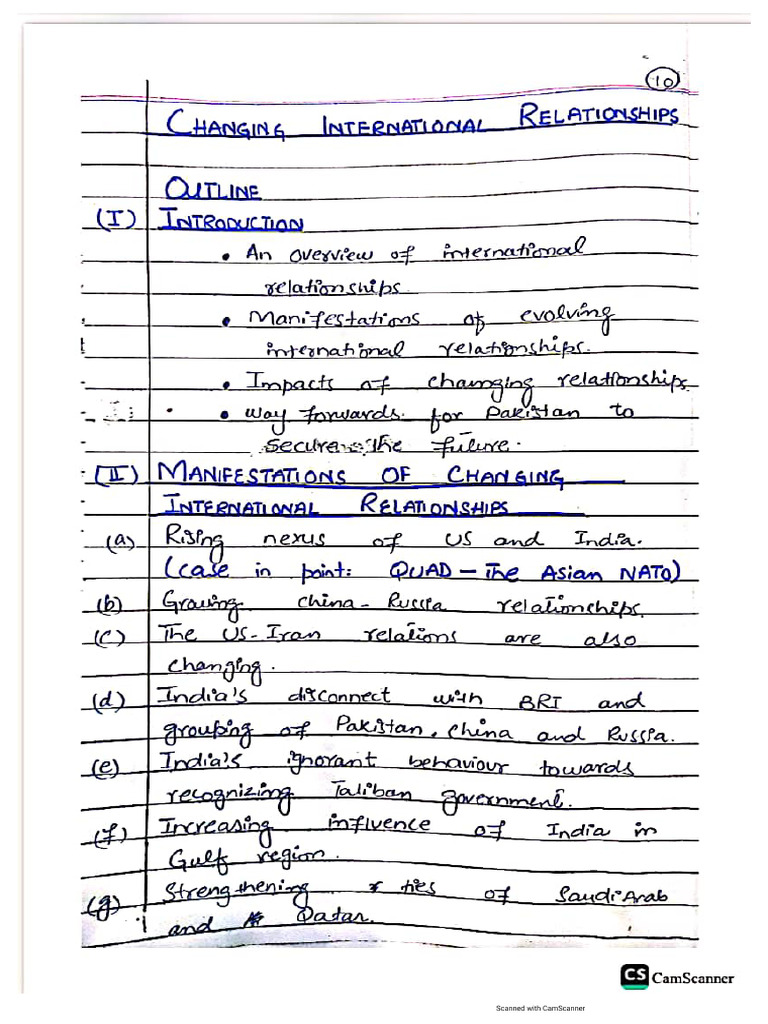 10
CHANGING INTERNATIONAL RELATIONSHIPS
OUTLINE
(I) INTRODUCTION
• An overview of international
relationships.
• Manifestations of evolving
international relationships.
• Impacts of changing relationships
• way forwards for Pakistan to
secure the future.
(II) MANIFESTATIONS OF CHANGING
INTERNATIONAL RELATIONSHIPS
(a) Rising nexus of US and India.
(case in point: QUAD – The Asian NATO)
(b) Growing china-Russia relationships.
(c) The US-Iran relations are also
changing.
(d) India's disconnect with BRI and
grouping of Pakistan, china and Russia.
(e) India's ignorant behaviour towards
recognizing Taliban government.
(f) Increasing influence of India in
Gulf region.
(g) Strengthening ties of Saudi Arab
and Qatar.
CS CamScanner
Scanned with CamScanner